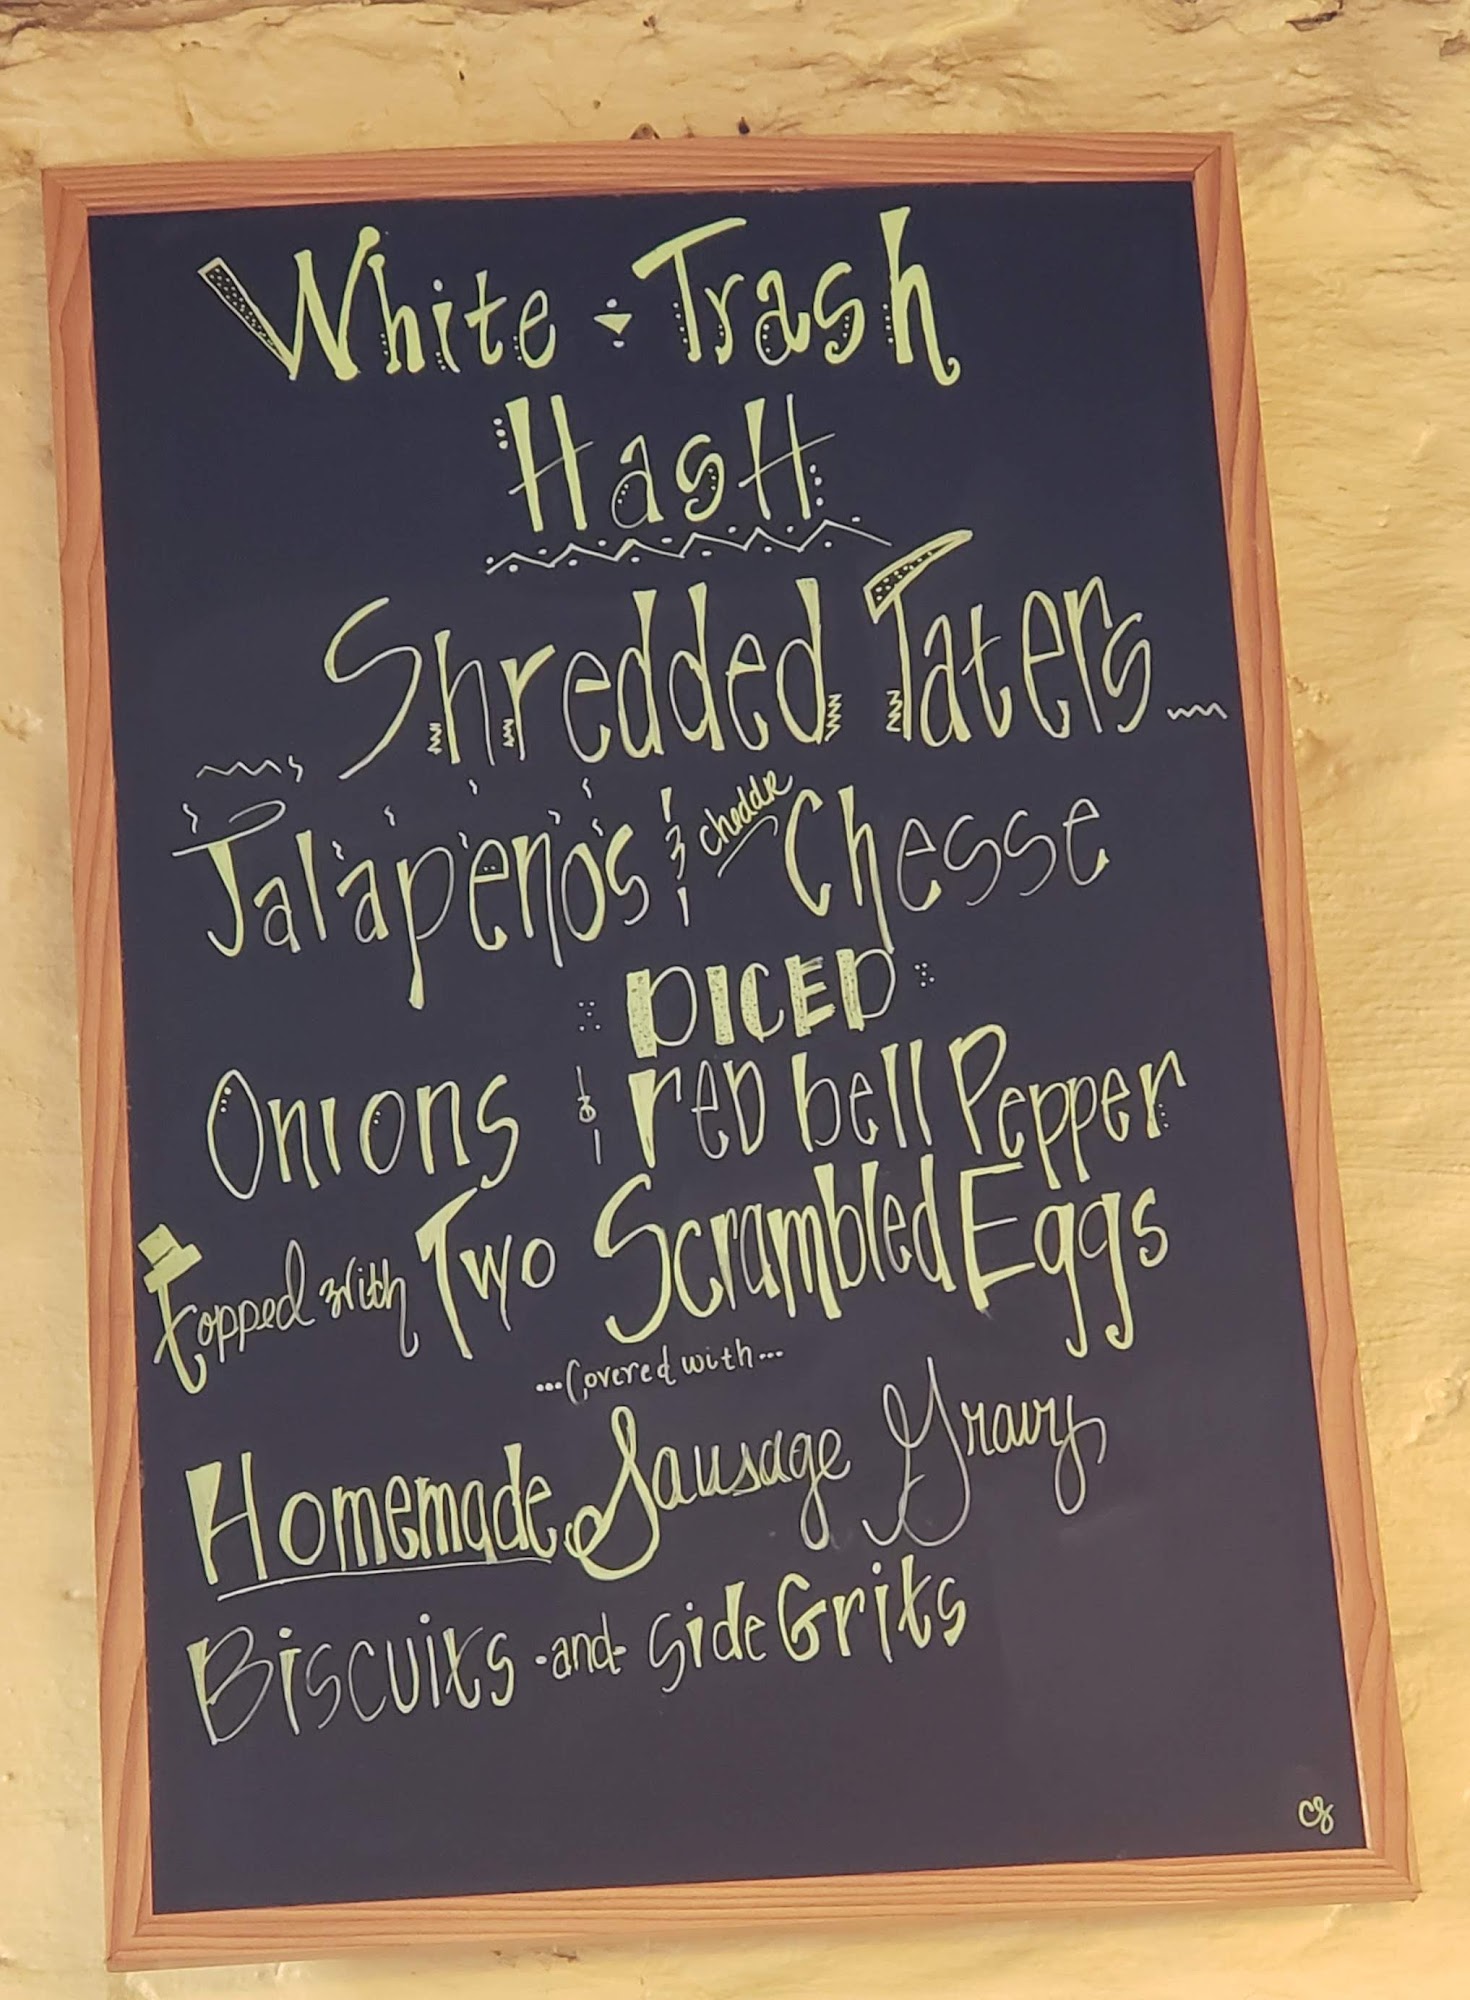 White Trash
HasH
Shredded Taters
Jalapenos & cheddar Chesse
DICED
Onions & reD bell Pepper
topped with Two Scrambled Eggs
...Covered with...
Homemade Sausage Gravy
Biscuits -and- side Grits